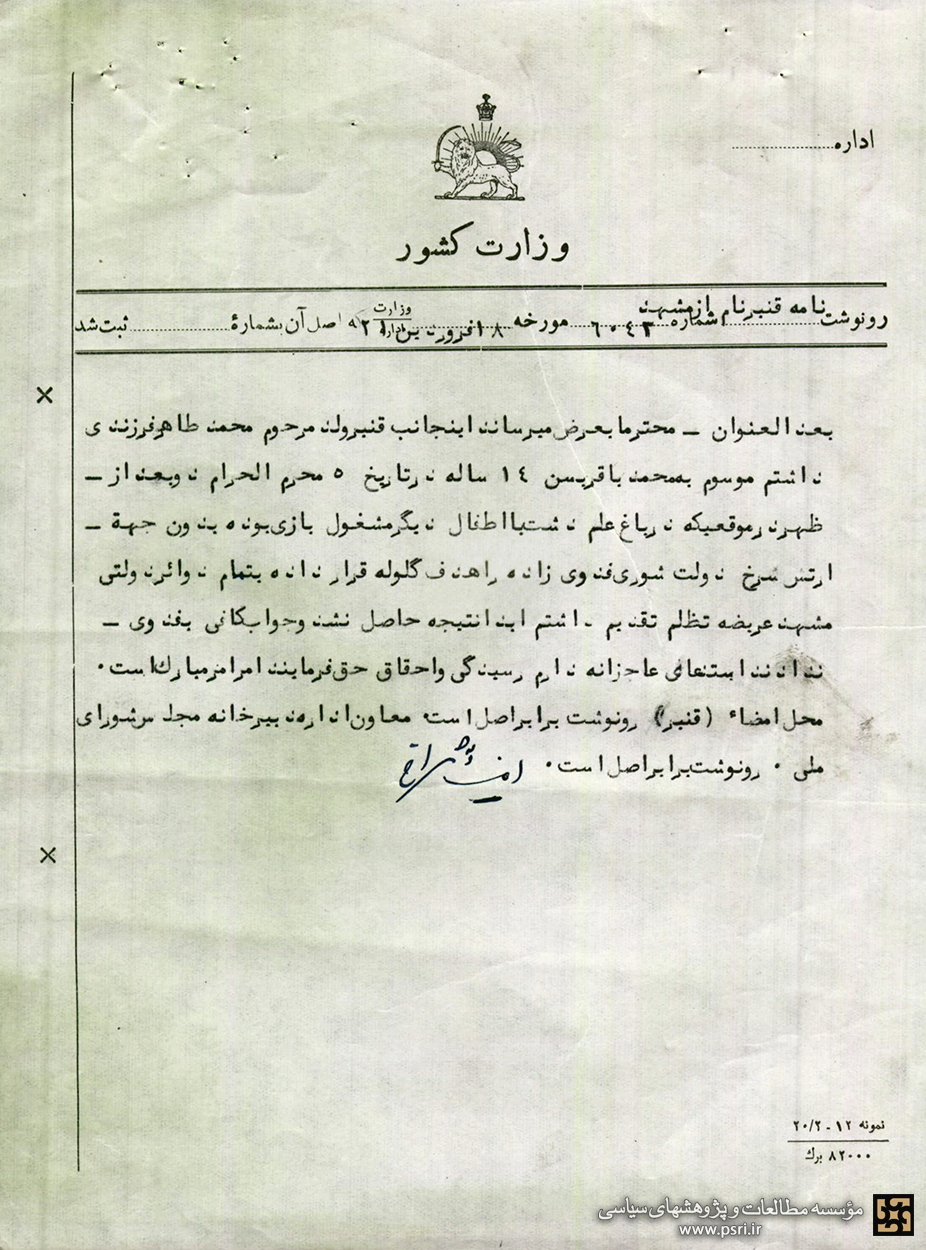 اداره
وزارت کشور
رونوشت نامه قنبر نام از مشهد شماره ٦٠٤٣ مورخه ١٨ فروردین وزارت اداره که اصل آن بشمارهٔ ثبت شد
بعد العنوان ـ محترما بعرض میرساند اینجانب قنبر ولد مرحوم محمد طاهر فرزندی
داشتم موسوم به محمد باقر بسن ١٤ ساله در تاریخ ٥ محرم الحرام دو بعد از ـ
ظهر در موقعیکه در باغ علم دشت با اطفال دیگر مشغول بازی بوده بدون جهة ـ
ارتش سرخ دولت شوروی فدوی زاده را هدف گلوله قرار داده بتمام دوائر دولتی
مشهد عریضه تظلم تقدیم داشتم ابدا نتیجه حاصل نشد و جواب کافی بفدوی ـ
ندادند استدعای عاجزانه دارم رسیدگی و احقاق حق فرمایند امر امر مبارک است ۰
محل امضاء (قنبر) رونوشت برابر اصل است معاون اداره دبیرخانه مجلس شورای
ملی ۰ رونوشت برابر اصل است ۰
نمونه ١٢ ـ ٢٠/٢
٨٢٠٠٠ برگ
مؤسسه مطالعات و پژوهشهای سیاسی
www.psri.ir